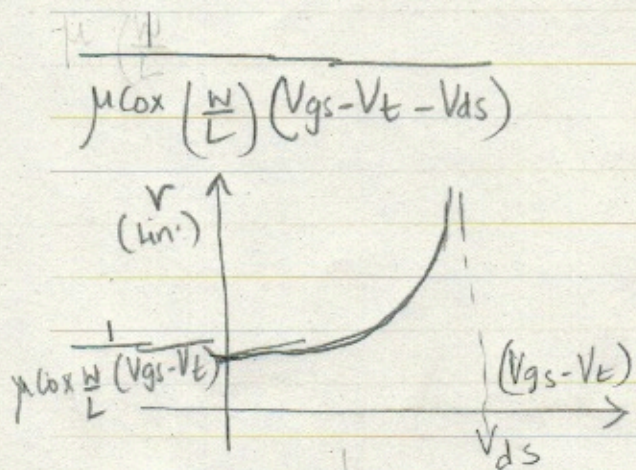 1
μCox (W/L) (Vgs-Vt-Vds)
r
(Lin.)
1
μCox W/L (Vgs-Vt)
(Vgs-Vt)
Vds